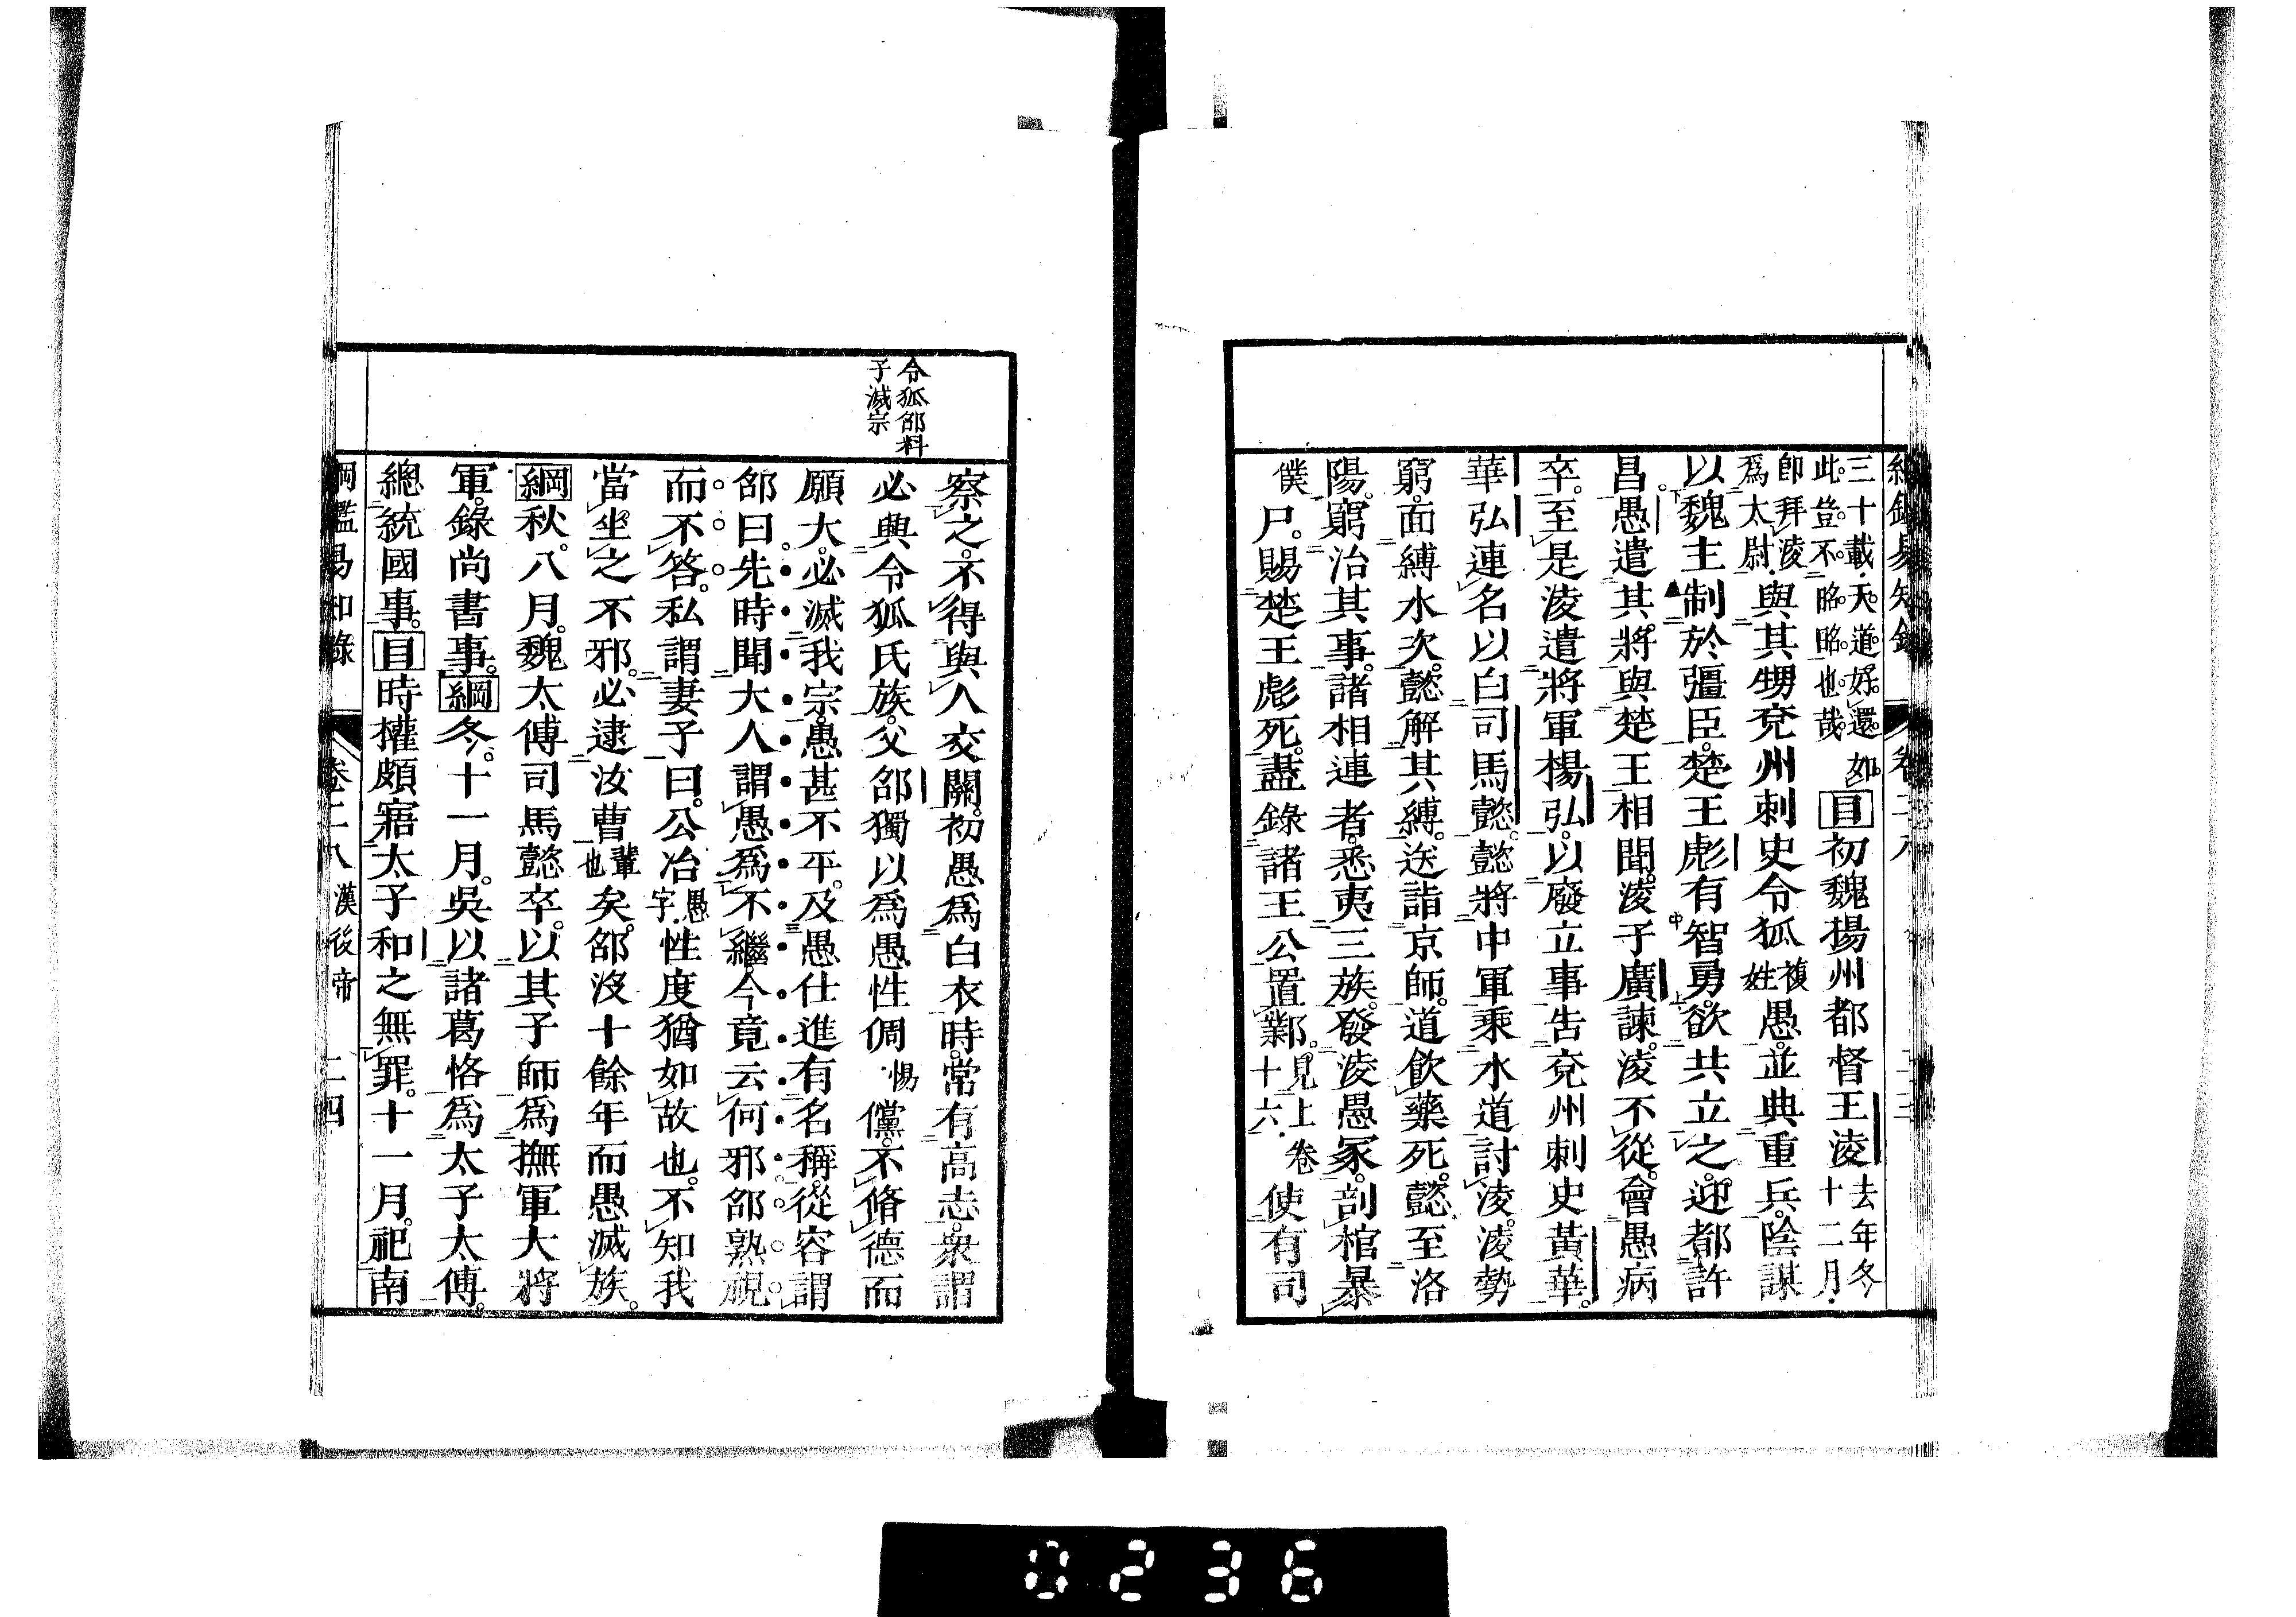 三十載天道好還如
此豈不昭昭也哉
目初魏揚州都督王淩去年冬
十二月
即拜淩
爲太尉與其甥兗州刺史令狐複
姓愚並典重兵陰謀
以魏主制於彊臣楚王彪有智勇欲共立之迎都許
昌愚遣其將與楚王相聞淩子廣諫淩不從會愚病
卒至是淩遣將軍楊弘以廢立事告兗州刺史黃華
華弘連名以白司馬懿懿將中軍乘水道討淩淩勢
窮面縛水次懿解其縛送詣京師道飮藥死懿至洛
陽窮治其事諸相連者悉夷三族發淩愚冢剖棺暴
僕尸賜楚王彪死盡錄諸王公置鄴見上卷
十六使有司
令狐邵料
子滅宗
察之不得與人交關初愚爲白衣時常有高志衆謂
必興令狐氏族父邵獨以爲愚性倜惕儻不脩德而
願大必滅我宗愚甚不平及愚仕進有名稱從容謂
邵曰先時聞大人謂愚爲不繼今竟云何邪邵熟視
而不答私謂妻子曰公冶愚
字性度猶如故也不知我
當坐之不邪必逮汝曹輩
也矣邵沒十餘年而愚滅族
綱秋八月魏太傅司馬懿卒以其子師爲撫軍大將
軍錄尚書事綱冬十一月吳以諸葛恪爲太子太傅
總統國事目時權頗寤太子和之無罪十一月祀南
綱鑑易知錄 卷二八 漢後帝 二四